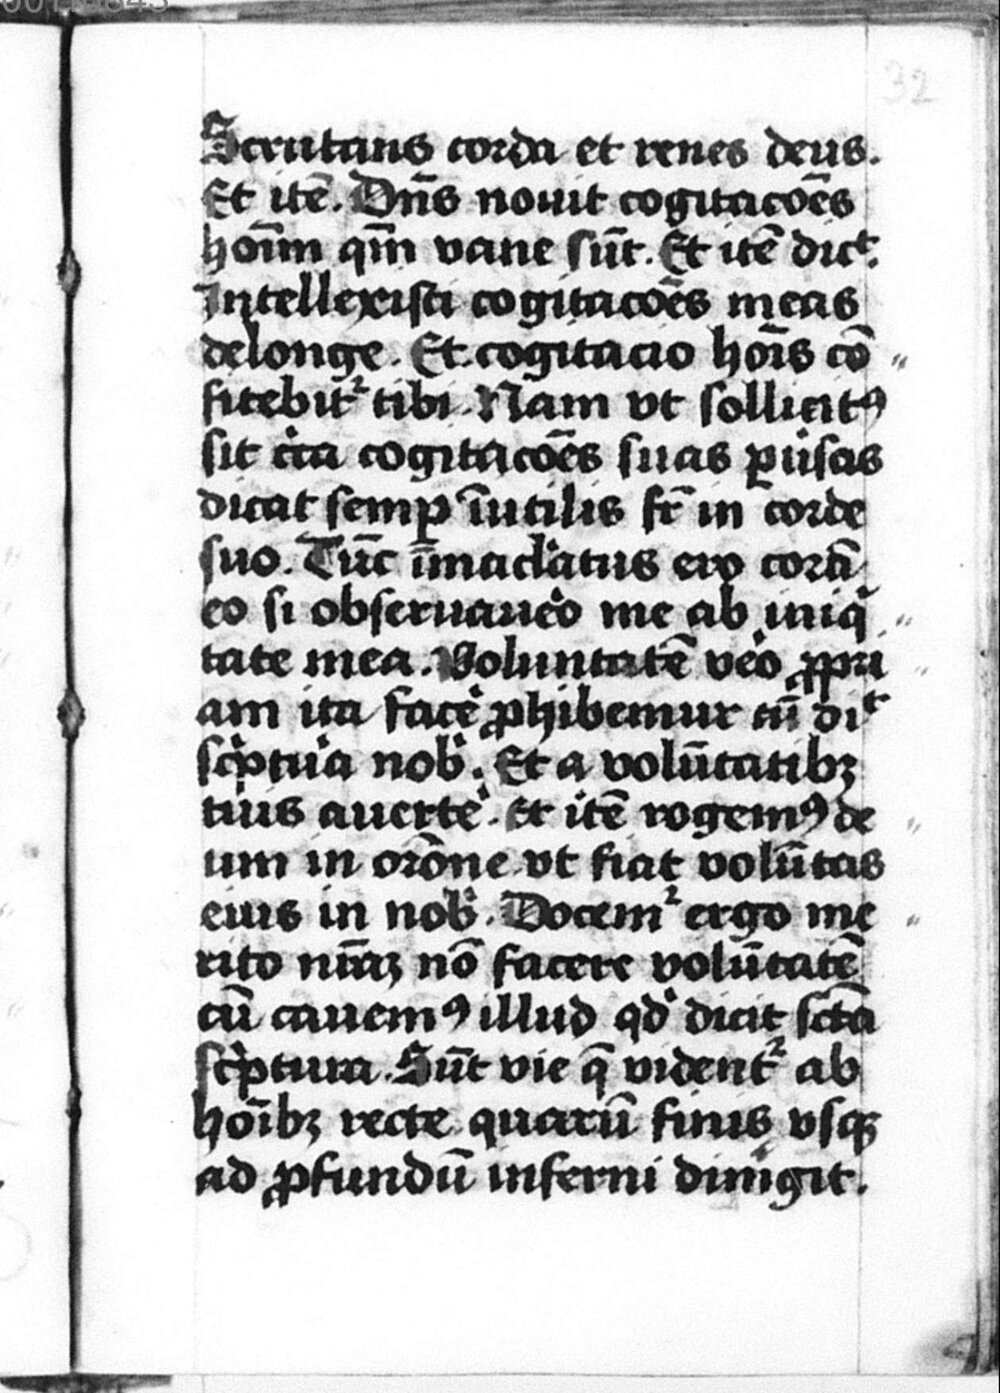 32
Scrutans corda et renes deus.
Et itē. Dn̄s nouit cogitacōēs
hoīm qm̄ vane sūt. Et itē dicͭ.
Intellexisti cogitacōēs meas
delonge. Et cogitacio hoīs cō
fitebitᷣ tibi. Nam vt sollicitꝰ
sit cͥca cogitacōēs suas puͥsas
dicat semꝑ īutilis fr̄ in corde
suo. Tūc īmacl̓atus ero corā
eo si obseruaue̓o me ab iniqͥ
tate mea. Voluntatē ve̓o ꝓpri
am ita face̓ ꝓhibemur cū diͭ
scͥptu̓a nob̓. Et a volūtatibꝫ
tuis auerte̓. Et itē rogemꝰ de
um in orōne vt fiat volūtas
eius in nob̓. Docemᷣ ergo me
rito nr̄aꝫ nō facere volūtatē
cū cauemꝰ illud qd̓ dicit sctā
scͥptura. Sūt vie q̄ videntᷣ ab
hoībꝫ recte quarū finis vsqꝫ
ad ꝓfundū inferni dimigit.